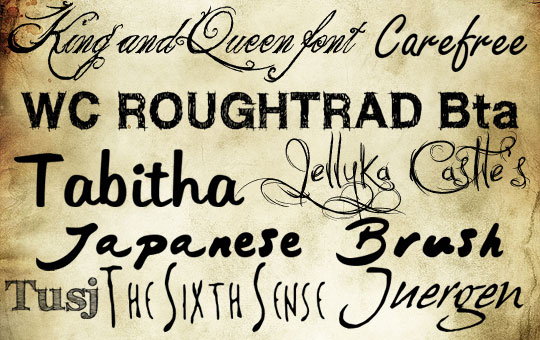 King and Queen font Carefree
WC ROUGHTRAD Bta
Tabitha Jellyka Castle's
Japanese Brush
Tusj THE SIXTH SENSE Juergen